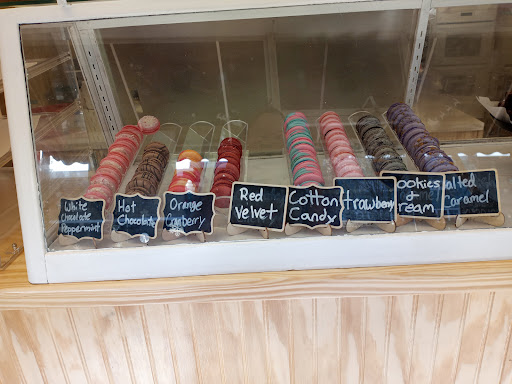 White
Chocolate
Peppermint
Hot
Chocolate
Orange
Cranberry
Red
Velvet
Cotton
Candy
trawberry
ookies
&
ream
alted
Caramel